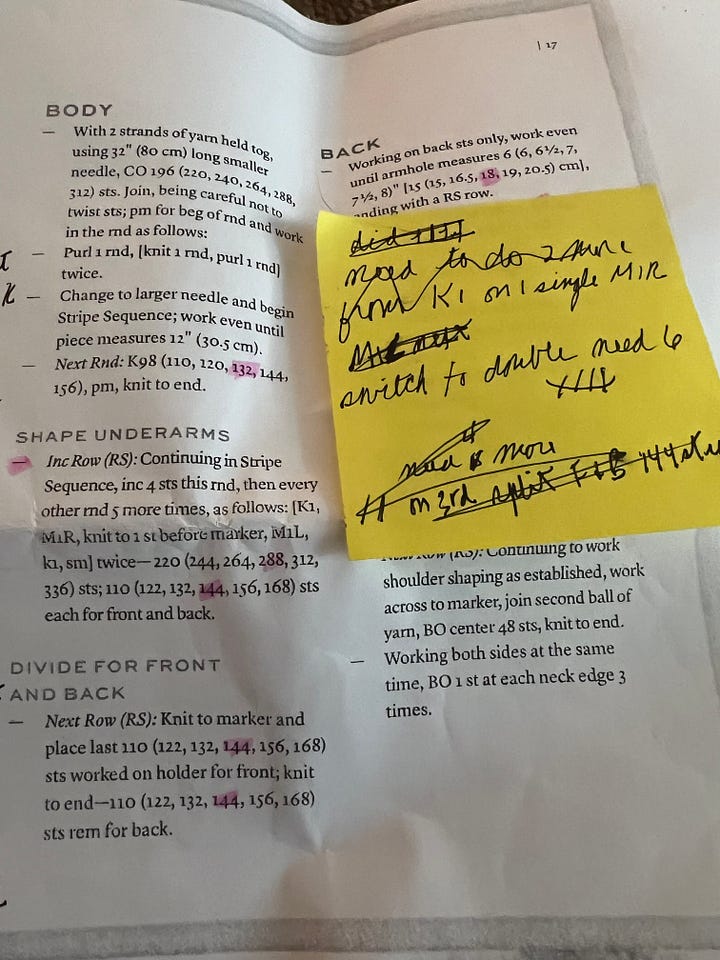 | 17
BODY
— With 2 strands of yarn held tog,
using 32" (80 cm) long smaller
needle, CO 196 (220, 240, 264, 288,
312) sts. Join, being careful not to
twist sts; pm for beg of rnd and work
in the rnd as follows:
— Purl 1 rnd, [knit 1 rnd, purl 1 rnd]
twice.
— Change to larger needle and begin
Stripe Sequence; work even until
piece measures 12" (30.5 cm).
— Next Rnd: K98 (110, 120, 132, 144,
156), pm, knit to end.
SHAPE UNDERARMS
— Inc Row (RS): Continuing in Stripe
Sequence, inc 4 sts this rnd, then every
other rnd 5 more times, as follows: [K1,
M1R, knit to 1 st before marker, M1L,
k1, sm] twice—220 (244, 264, 288, 312,
336) sts; 110 (122, 132, 144, 156, 168) sts
each for front and back.
DIVIDE FOR FRONT
AND BACK
— Next Row (RS): Knit to marker and
place last 110 (122, 132, 144, 156, 168)
sts worked on holder for front; knit
to end—110 (122, 132, 144, 156, 168)
sts rem for back.
BACK
— Working on back sts only, work even
until armhole measures 6 (6, 6½, 7,
7½, 8)" [15 (15, 16.5, 18, 19, 20.5) cm],
ending with a RS row.
did
need to do 2 more
from K1 on 1 single M1R
switch to double need 6
need 8 more
on 3rd split F+B 144
Next Row (RS): Continuing to work
shoulder shaping as established, work
across to marker, join second ball of
yarn, BO center 48 sts, knit to end.
— Working both sides at the same
time, BO 1 st at each neck edge 3
times.